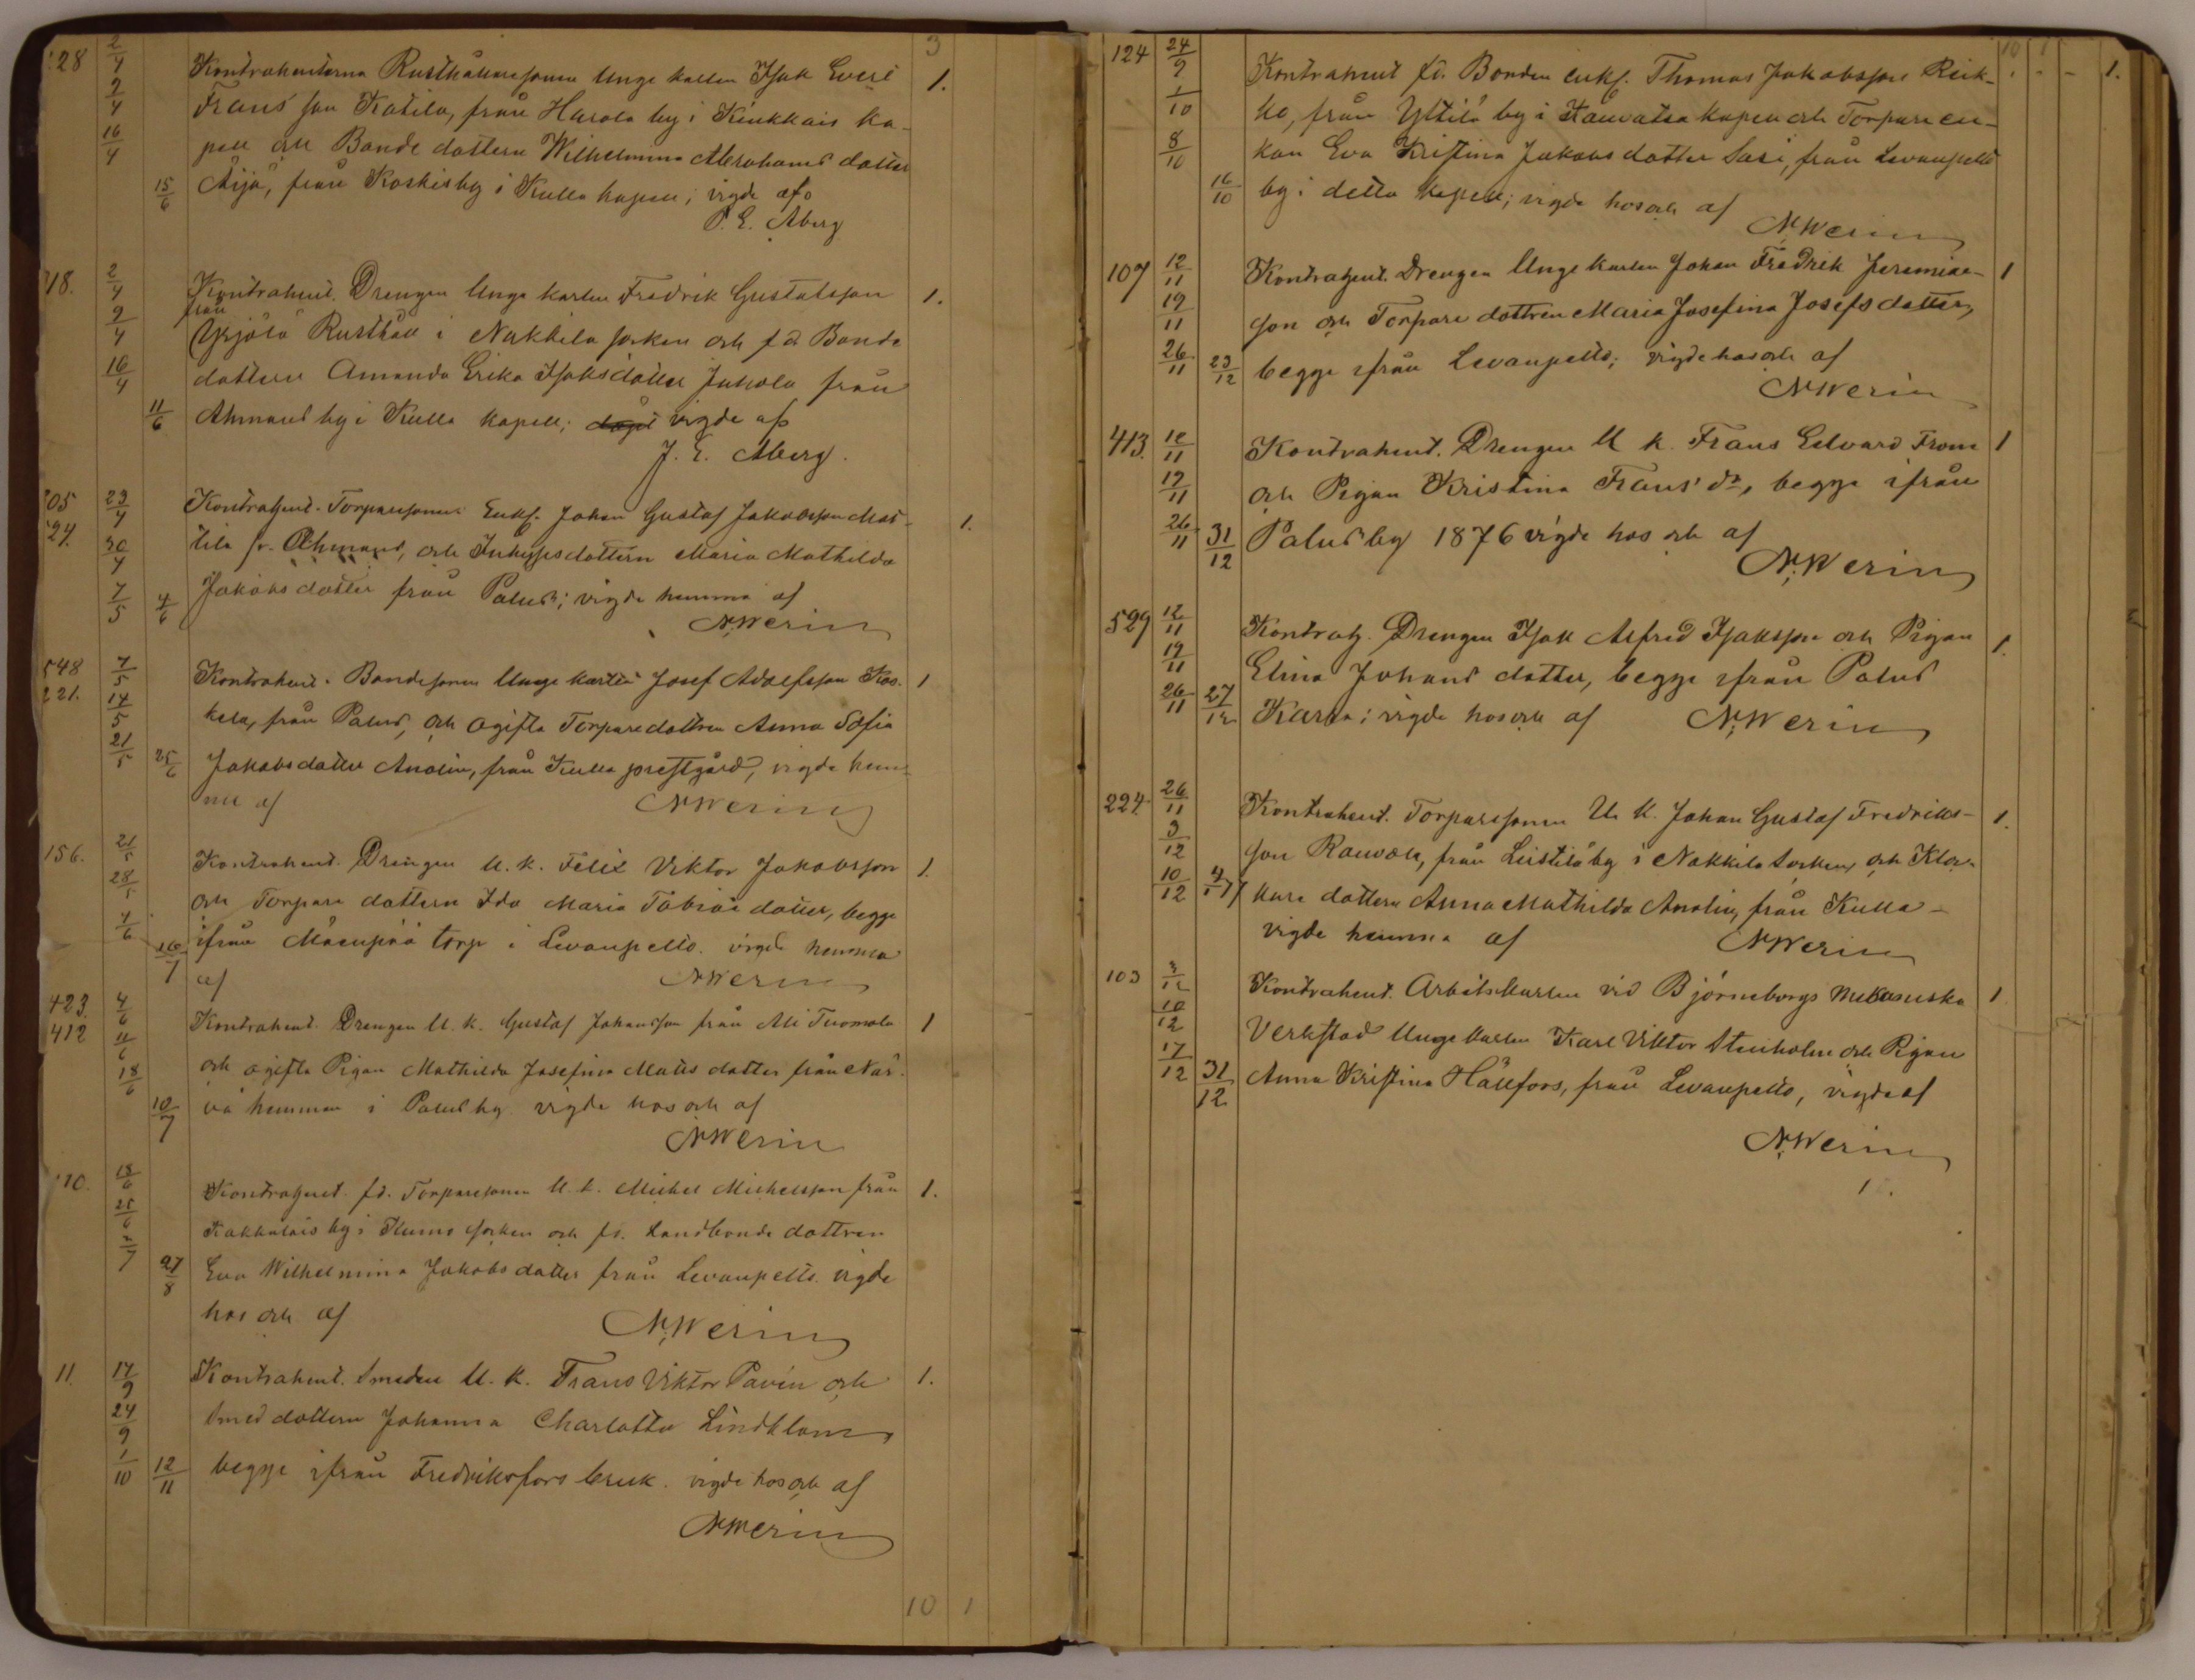 3
128 2/4 Kontrahenterna Rusthållaresonen Unge karlen Isak Evert 1.
9/4 Frans' son Katila, från Harola by i Kiukkais ka-
16/4 pell och Bonde dottern Wilhelmina Abrahams dotter
15/6 Äijä, från Koskis by i Kulla kapell; vigde af
J. E. Åberg
318. 2/4 Kontrahent. Drengen Unge karlen Fredrik Gustafsson 1.
från
9/4 Yrjölä Rusthåll i Nakkila socken och f. d. Bonde
16/4 dottern Amanda Erika Isaksdotter Juhola från
11/6 Ahmaus by i Kulla kapell; vigde af
J. E. Åberg.
305 23/4 Kontrahent. Torparesonen Enkl. Johan Gustaf Jakobsson Mat- 1.
327. 30/4 tila fr. Ahmaus, och Inhysesdottern Maria Mathilda
7/5 4/6 Jakobs dotter från Palus; vigde hemma af
N. Werin
548 7/5 Kontrahent. Bondesonen Unge karlen Josef Adolfsson Kos- 1
221. 14/5 kela, från Palus, och ogifta Torparedottren Anna Sofia
21/5 25/6 Jakobsdotter Analin, från Kulla prestgård, vigde hem-
ma af N. Werin
156. 21/5 Kontrahent. Drengen U. k. Felix Viktor Jakobsson 1.
28/5 och Torpare dottern Ida Maria Tobias dotter, begge
4/6 ifrån Mäenpää torp i Levanpelto. vigde hemma
16/7 af N. Werin
423. 4/6 Kontrahent. Drengen U. k. Gustaf Johansson från Ali Tuomola 1
412 11/6 och ogifta Pigan Mathilda Josefina Matts dotter från När-
18/6 vä hemman i Palus by. vigde hos och af
10/7 N. Werin
110. 18/6 Kontrahent. fd. Torparesonen U. k. Michel Michelsson från 1.
25/6 Kakkulais by i Kumo socken och fd. Landbonde dottren
2/7 27/8 Eva Wilhelmina Jakobs dotter från Levanpelto. vigde
hos och af N. Werin
11. 17/9 Kontrahent. Smeden U. k. Frans Viktor Pavén och 1.
24/9 Smed dottern Johanna Charlotta Lindblom,
1/10 12/11 begge ifrån Fredriksfors bruk. vigde hos och af
N. Werin
10 1
10 1
124 24/9 Kontrahent fd. Bonden enkl. Thomas Jakobsson Reik- 1.
1/10 ko, från Yttilä by i Kauvatsa kapell och Torpare en-
8/10 kan Eva Kristina Jakobs dotter Sasi, från Levanpelto
16/10 by i detta kapell; vigde hos och af
N. Werin
107 12/11 Kontrahent. Drengen Unge karlen Johan Fredrik Jeremias- 1
19/11 son och Torpare dottren Maria Josefina Josefs dotter,
26/11 23/12 begge ifrån Levanpelto; vigde hos och af
N. Werin
413. 12/11 Kontrahent. Drengen U k. Frans Edvard From 1
19/11 och Pigan Kristina Frans' dr, begge ifrån
26/11 31/12 Palus by 1876 vigde hos och af
N. Werin
529 12/11 Kontrah. Drengen Isak Alfred Isaksson och Pigan 1.
19/11 Elina Johans dotter, begge ifrån Palus
26/11 27/12 Karra; vigde hos och af N. Werin
224. 26/11 Kontrahent. Torparesonen U. k. Johan Gustaf Fredriks- 1.
3/12 son Rauvola, från Leistilä by i Nakkila socken, och Kloc-
10/12 4/1 77 kare dottern Anna Mathilda Analin, från Kulla -
vigde hemma af N. Werin
103 3/12 Kontrahent. Arbetskarlen vid Björneborgs Mekaniska 1
10/12 Verkstad Unge karlen Karl Viktor Stenholm och Pigan
17/12 31/12 Anna Kristina Hällfors, från Levanpelto, vigde af
N. Werin